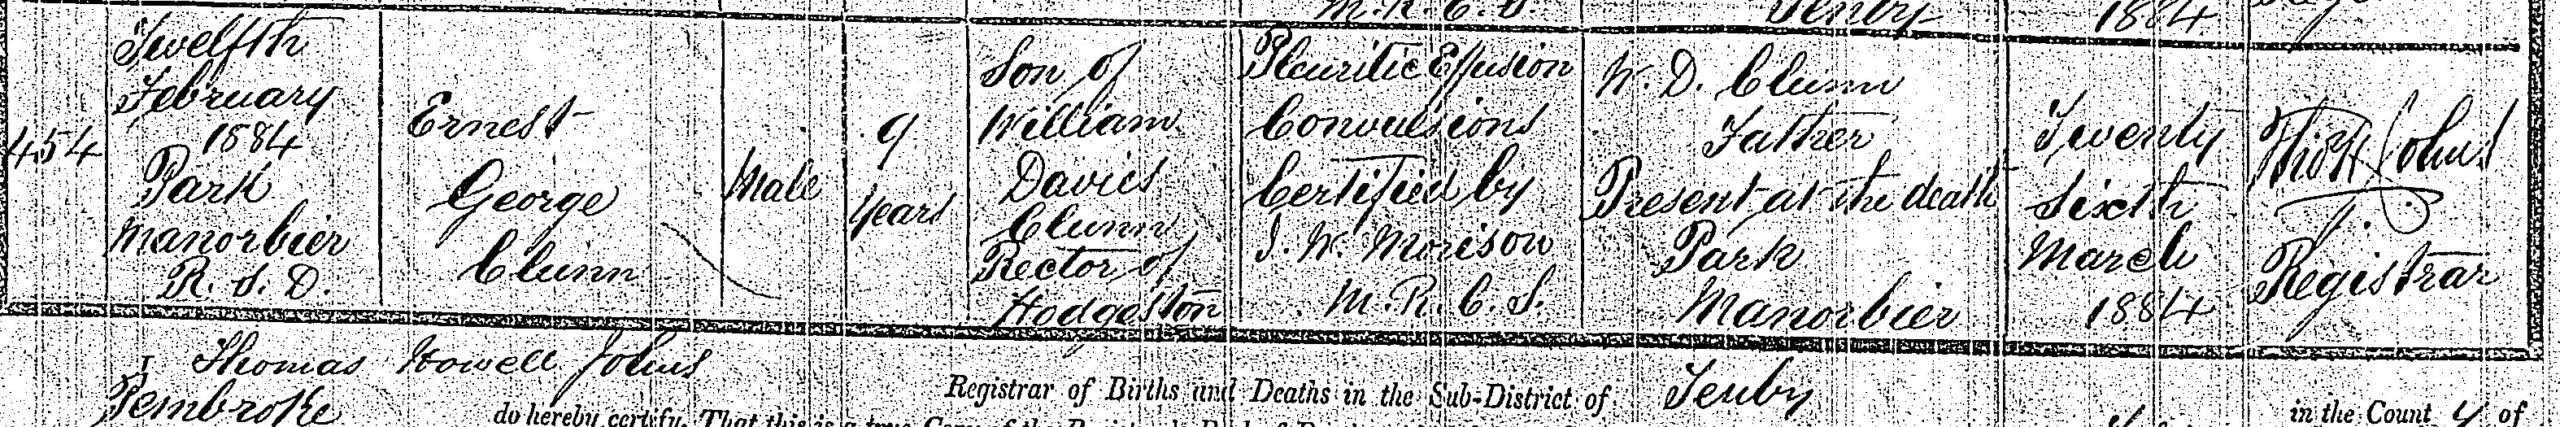 M.R.C.S.
Tenby
1884
454
Twelfth
February
1884
Park
Manorbier
R. S. D.
Ernest
George
Clunn
Male
9
years
Son of
William
Davies
Clunn
Rector of
Hodgeston
Pleuritic Effusion
Convulsions
Certified by
J. W. Morison
M.R.C.S.
W. D. Clunn
Father
Present at the death
Park
Manorbier
Twenty
Sixth
March
1884
Johns
Registrar
I Thomas Howell Johns Registrar of Births and Deaths in the Sub-District of Tenby in the County of
Pembroke do hereby certify, That this is a true Copy of the